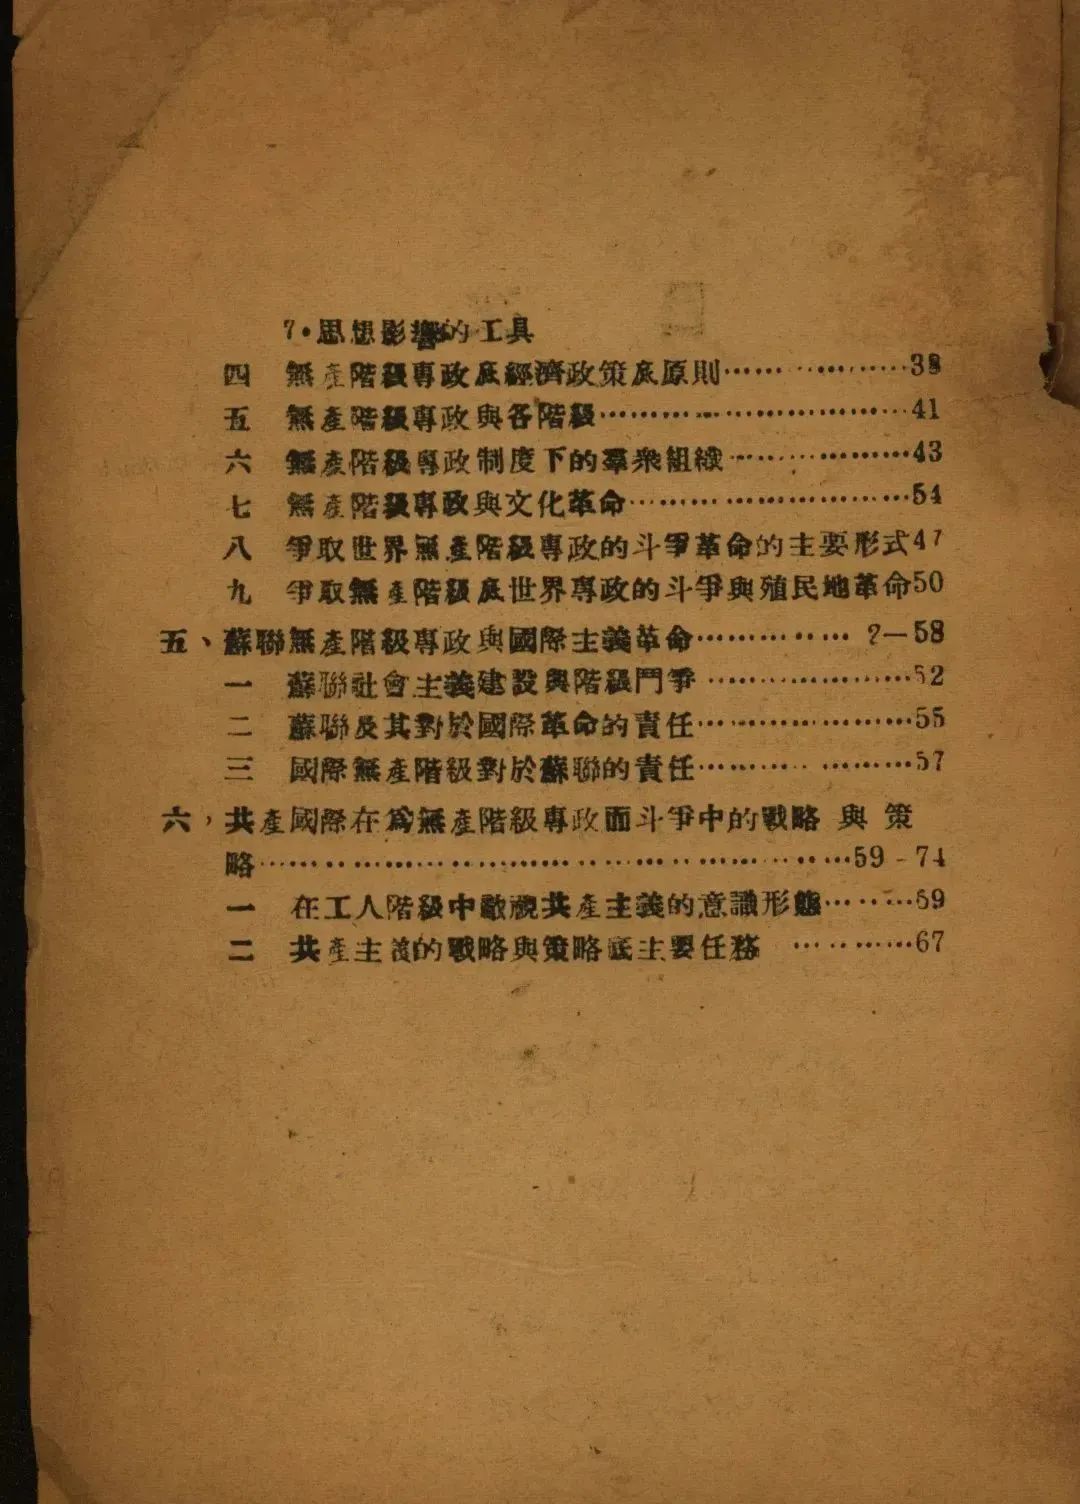 7·思想影響的工具
四 無產階級專政底經濟政策底原則……………38
五 無產階級專政與各階級………………………41
六 無產階級專政制度下的羣衆組織……………43
七 無產階級專政與文化革命……………………54
八 爭取世界無產階級專政的斗爭革命的主要形式47
九 爭取無產階級底世界專政的斗爭與殖民地革命50
五、蘇聯無產階級專政與國際主義革命…………… ?—58
一 蘇聯社會主義建設與階級鬥爭………………52
二 蘇聯及其對於國際革命的責任………………55
三 國際無產階級對於蘇聯的責任………………57
六，共產國際在爲無產階級專政而斗爭中的戰略 與 策
略……………………………………………59-74
一 在工人階級中敵視共產主義的意識形態………59
二 共產主義的戰略與策略底主要任務 …………67